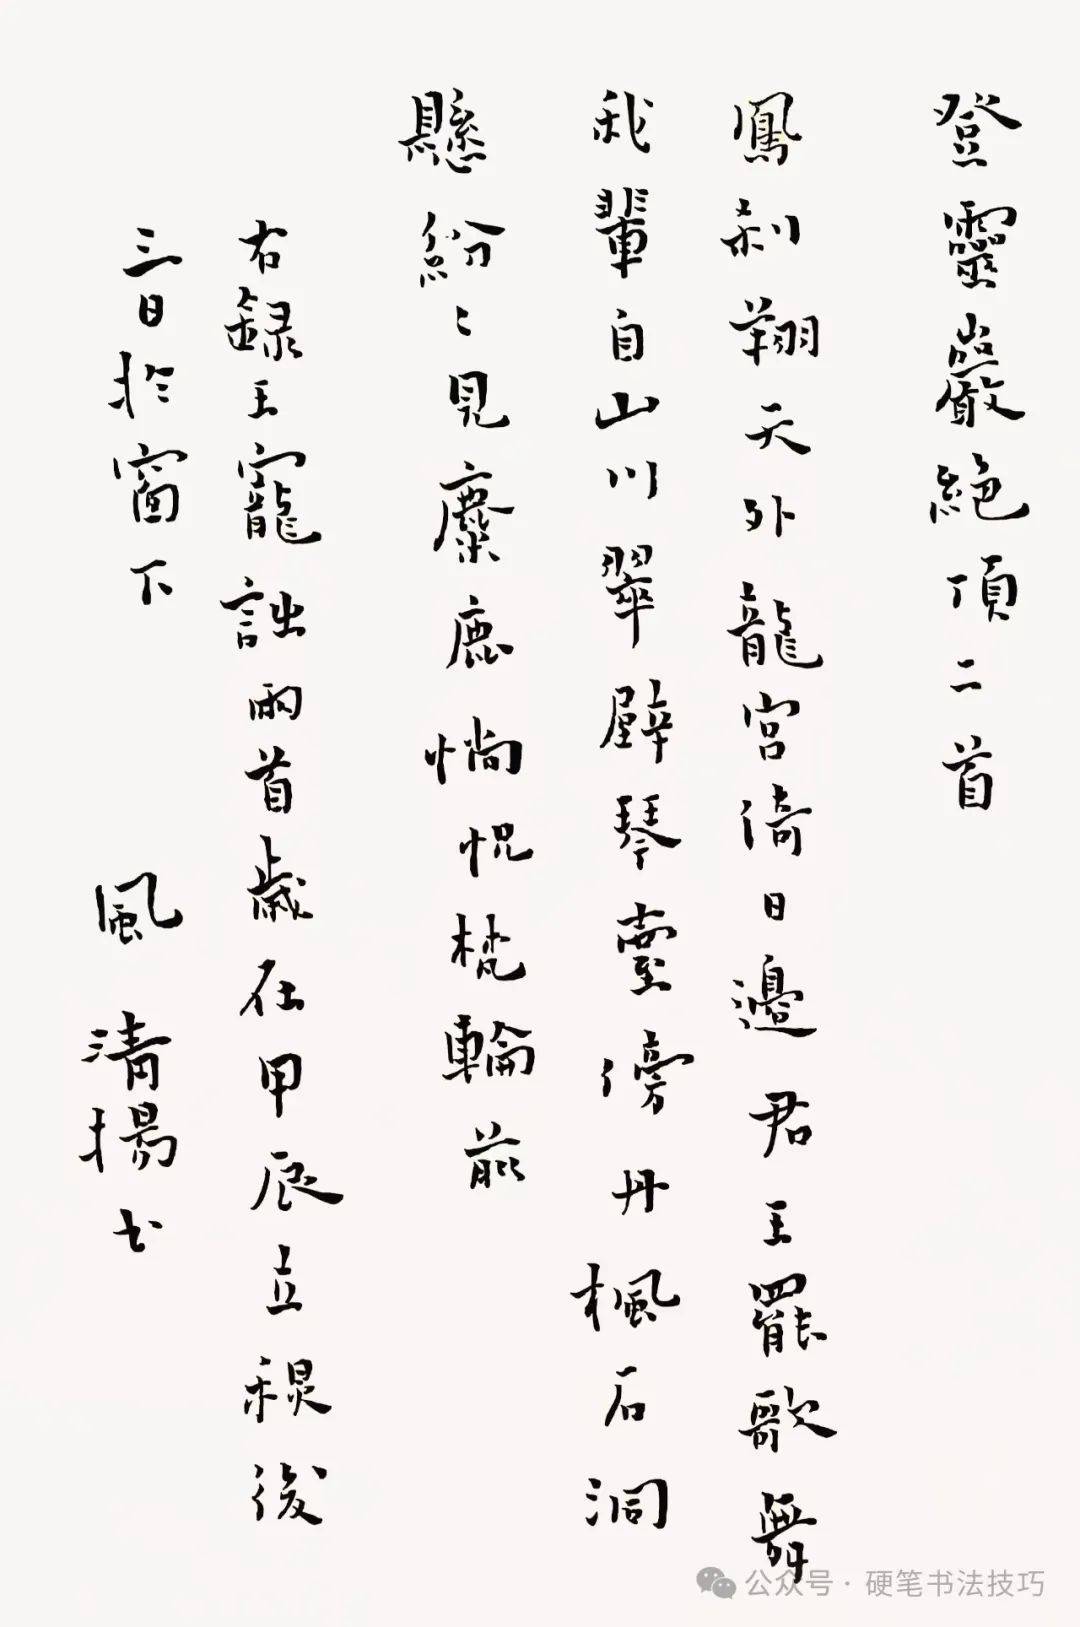 登靈巖絕頂二首
鳳刹翔天外龍宮倚日邊君王罷歌舞
我輩自山川翠壁琴臺傍丹楓石洞
懸紛々見麋鹿惝怳梵輪前
右録王寵詩兩首歲在甲辰立秋後
三日於窗下
風清揚书
公众号·硬笔书法技巧